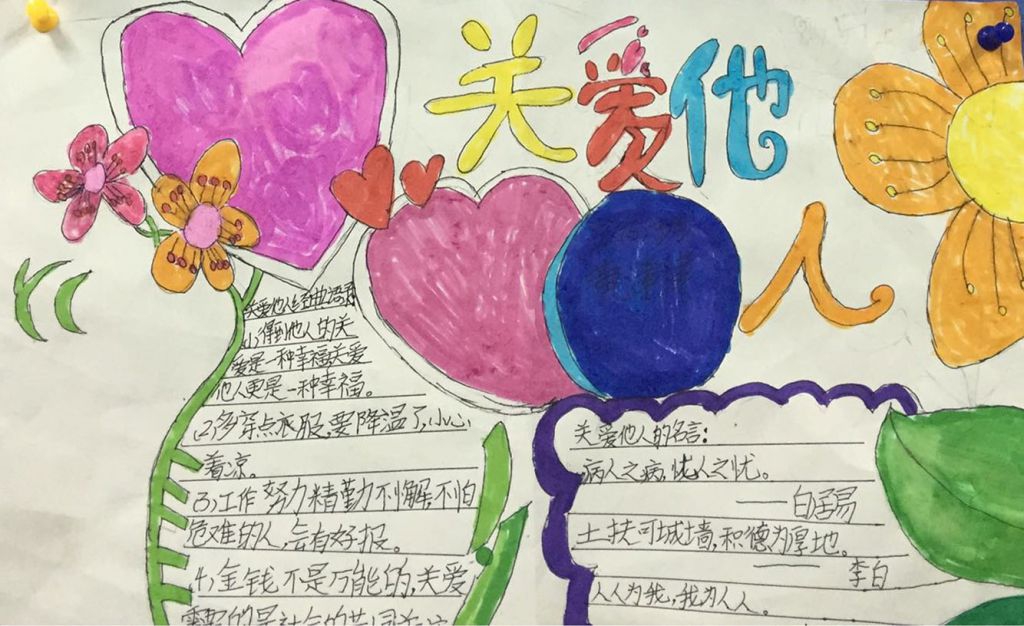 关爱他人
关爱他人经典语录
(1)得到他人的关
爱是一种幸福关爱
他人更是一种幸福。
(2)多穿点衣服,要降温了,小心
着凉。
(3)工作努力精勤不懈,不怕
危难的人,会有好报。
(4)金钱不是万能的,关爱
关爱他人的名言:
病人之病,忧人之忧。
——白居易
土扶可城墙,积德为厚地。
——李白
人人为我,我为人人。